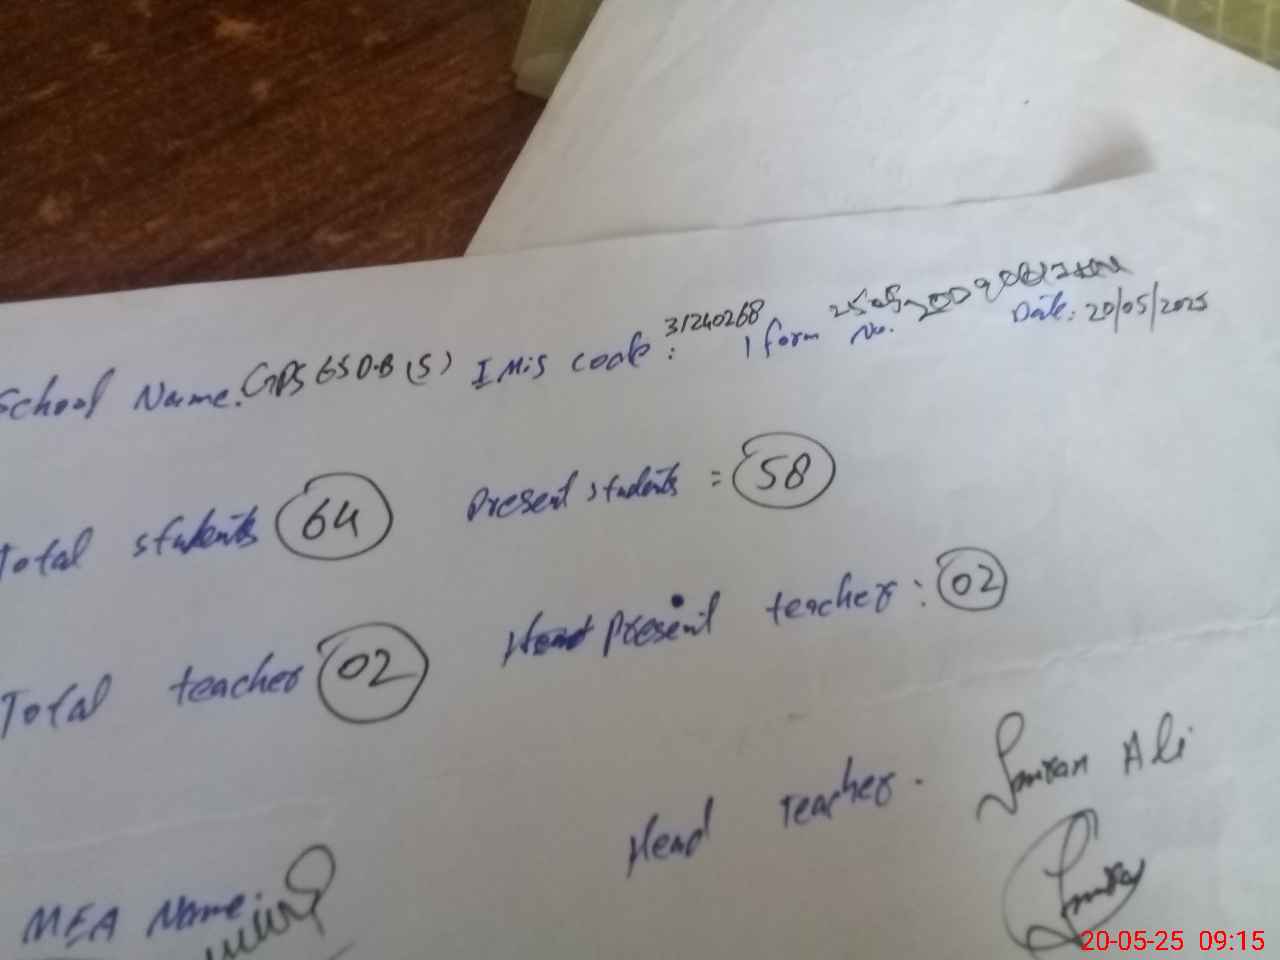 School Name. GPS 65 D.B (S) IMIS code : 31240268 1 form No. Date: 20/05/2025
Total students 64 Present students = 58
Total teacher 02 Present teacher : 02
Head Teacher. Imran Ali
MEA Name:
20-05-25 09:15